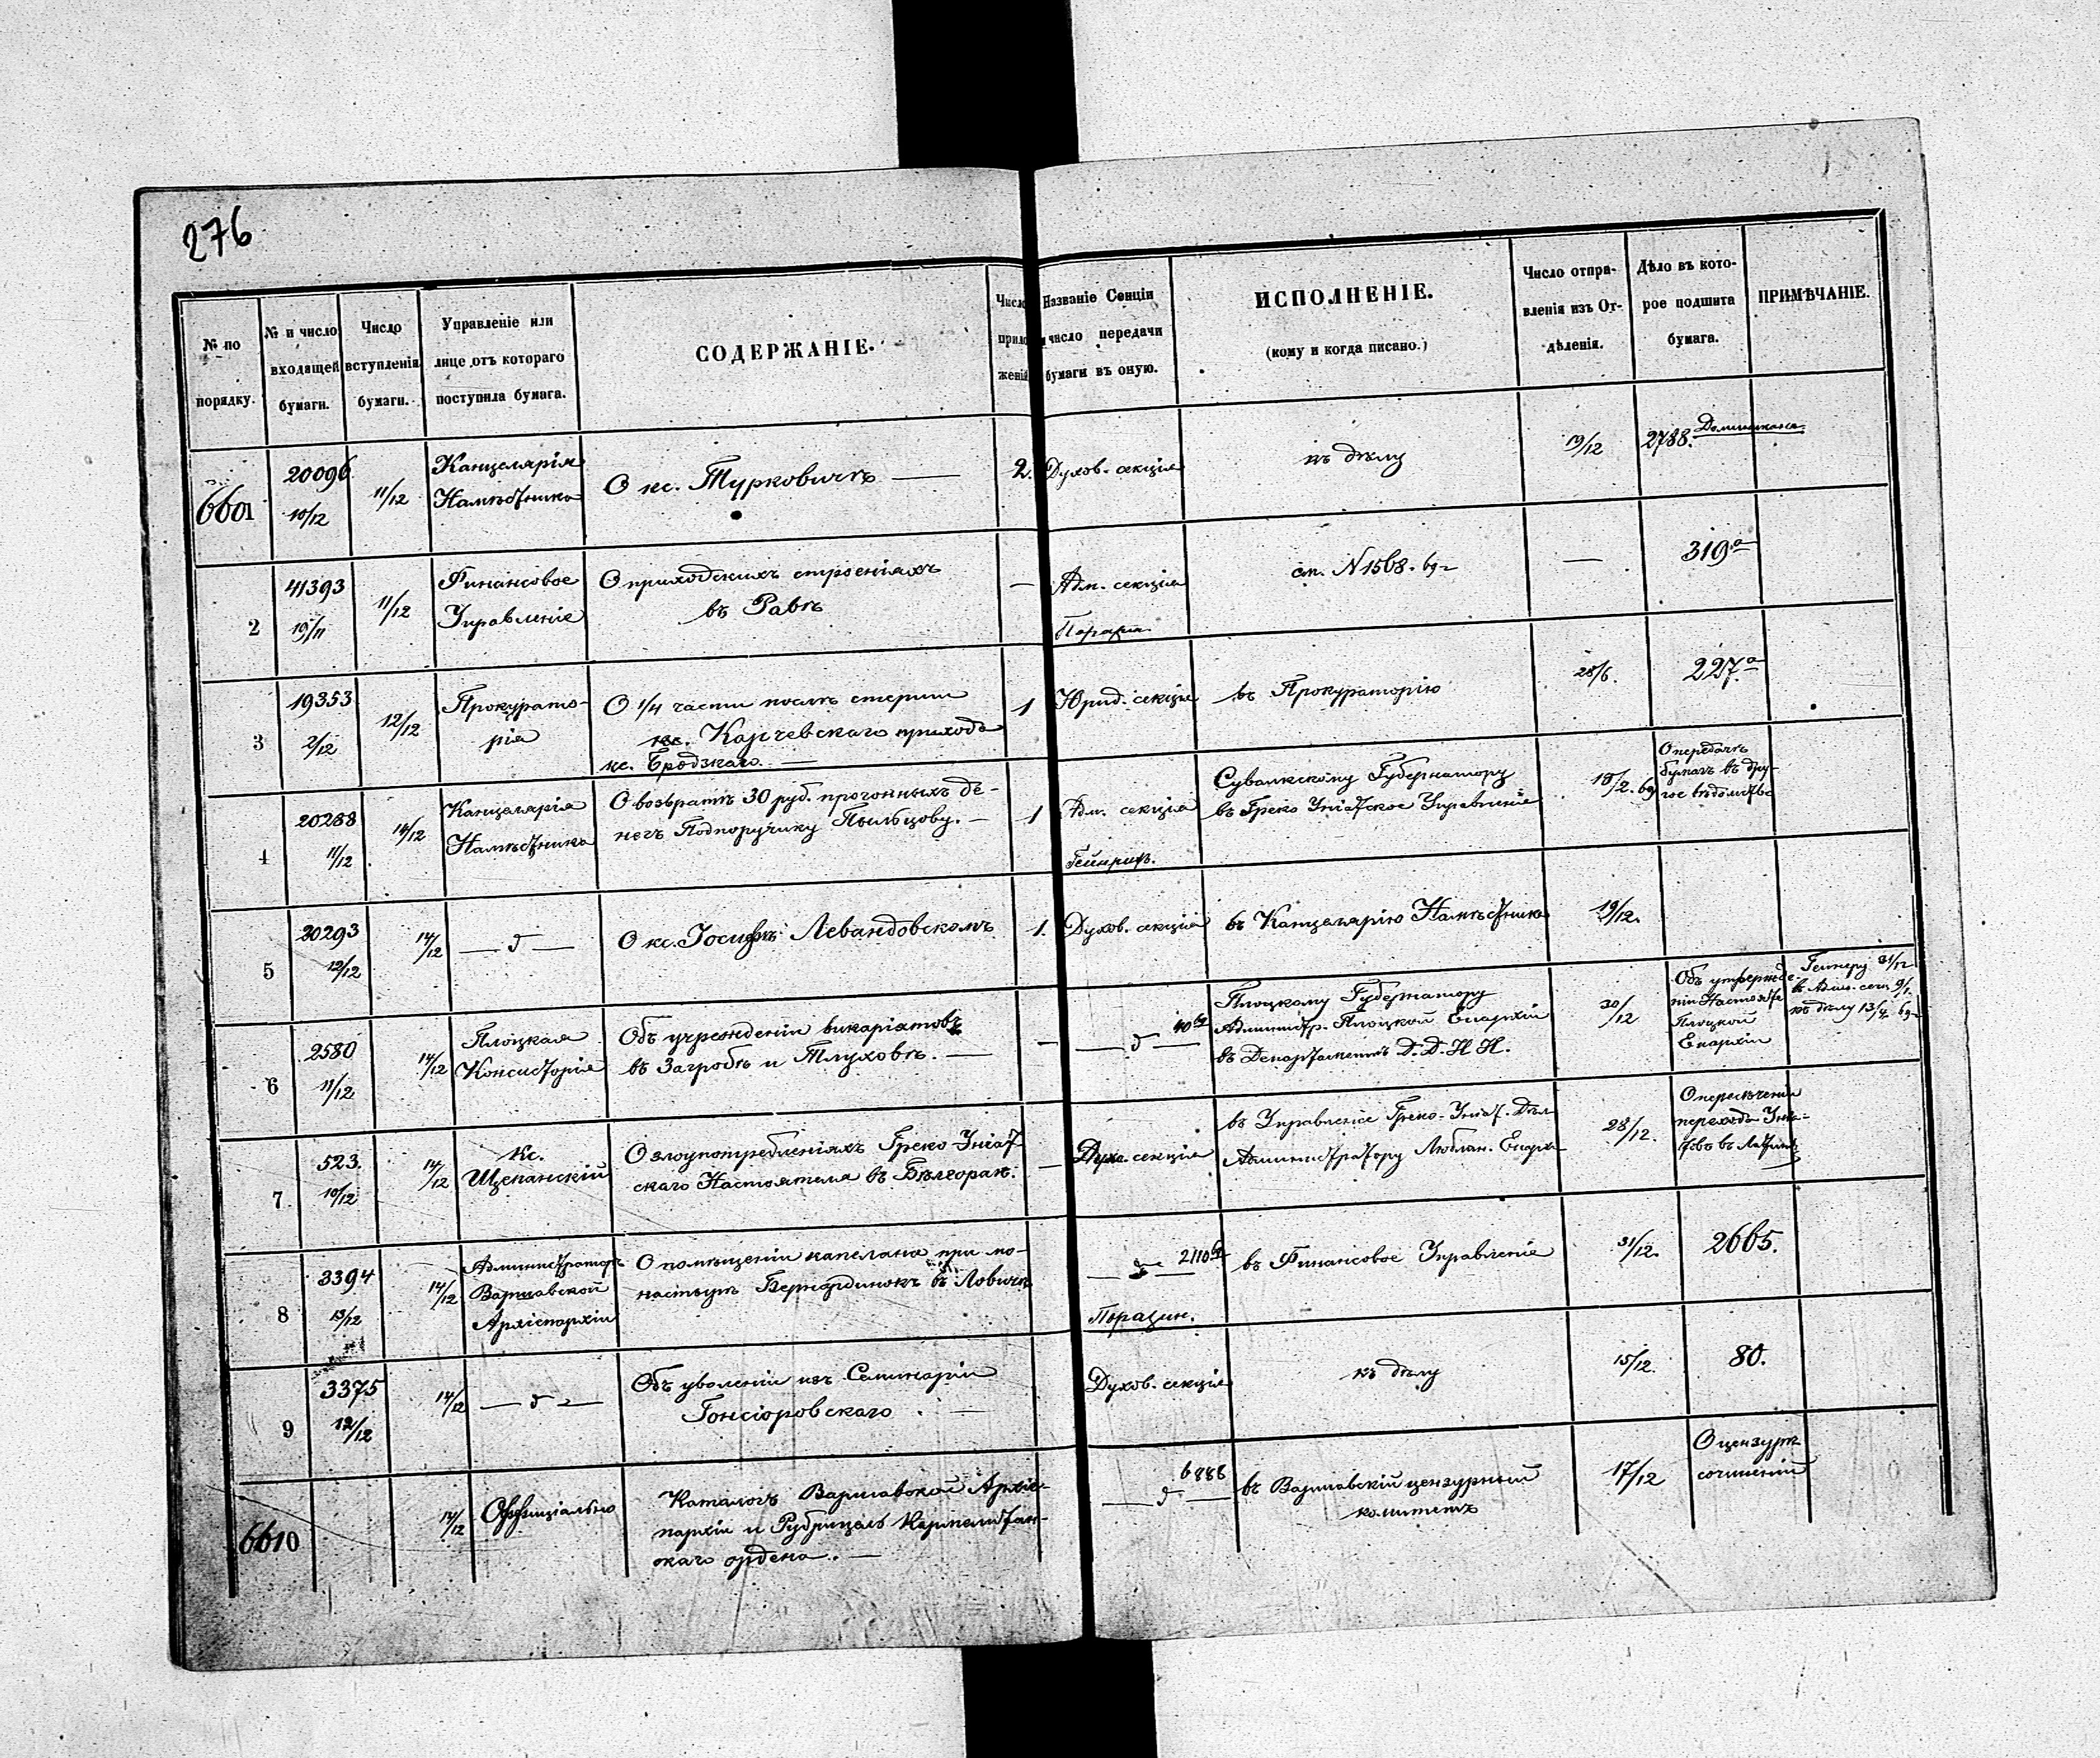 276
№ по порядку.
№ и число входящей бумаги.
Число вступленія бумаги.
Управленіе или лице отъ котораго поступила бумага.
СОДЕРЖАНІЕ.
Число приложеній
Названіе Секціи и число передачи бумаги въ оную.
ИСПОЛНЕНІЕ.
(кому и когда писано.)
Число отправленія изъ Отдѣленія.
Дѣло въ которое подшита бумага.
ПРИМѢЧАНІЕ.
6601
20096
10/12
11/12
Канцелярія
Намѣстника
О кс. Турковичѣ —
2.
Духов. секція
къ дѣлу
19/12
2788.
2
41393
19/11
11/12
Финансовое
Управленіе
О приходскихъ строеніяхъ
въ Равѣ
—
Адм. секція
см. N 1568. 69 г
—
319 а
3
19353
2/12
12/12
Прокурато-
рія
О 1/4 части послѣ смерти
кс. Карчевскаго прихода
кс. Бродзкаго —
1
Юрид. секція
въ Прокураторію
28/6.
227. а
4
20288
11/12
14/12
Канцелярія
Намѣстника
О возвратѣ 30 руб. прогонныхъ де-
негъ Подпоручику Пыльцову. —
1
Адм. секція
Гейнрих.
Сувалкскому Губернатору
въ Греко Уніатское Управленіе
18/2. 69
О передачѣ
бумагъ въ дру-
гое вѣдомство
5
20293
12/12
14/12
— д —
О кс. Іосифѣ Левандовскомъ
1.
Духов. секція
въ Канцелярію Намѣстника
19/12.
6
2580
11/12
14/12
Плоцкая
Консисторія
Объ учрежденіи викаріатовъ
въ Загробѣ и Тлуховѣ. —
—
— д —
Плоцкому Губернатору
Администр. Плоцкой Епархіи
въ Департаментъ Д. Д. И. И.
30/12
Объ утвержде-
ніи Настоят
Плоцкой
Епархіи
къ дѣлу 13/4 69 г
7
523.
10/12
14/12
Кс.
Щепанскій
О злоупотребленіяхъ Греко Уніат-
скаго Настоятеля въ Бѣлгораѣ.
—
Духо. секція
въ Управленіе Греко-Уніат. Дѣл
Администратору Люблин. Епарх
28/12.
О пресѣченіи
перехода Уніа-
товъ въ Латин
8
3394
13/12
14/12
Администраторъ
Варшавской
Архіепархіи
О помѣщеніи капелана при мо-
настырѣ Бернардинокъ въ Ловичѣ
— д —
2110
Порадин.
въ Финансовое Управленіе
31/12.
2665.
9
3375
12/12
14/12
— д —
Объ уволеніи изъ Семинаріи
Гонсіоровскаго. —
Духов. секція
къ дѣлу
15/12.
80.
6610
14/12
Оффиціально
Каталогъ Варшавской Архіе-
пархіи и Рубрицель Кармелитан-
скаго ордена. —
— д —
6888
въ Варшавскій цензурный
комитетъ
17/12
О цензурѣ
сочиненій